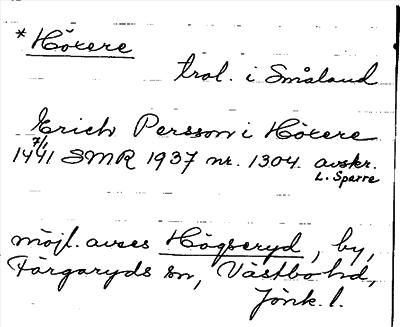 *Hötere
trol. i Småland
Erich Persson i Hötere
7/1
1441 SMR 1937 nr. 1304. avskr.
L. Sparre
möjl. avses Högseryd, by,
Färgaryds sn, Västbo hd,
Jönk. l.